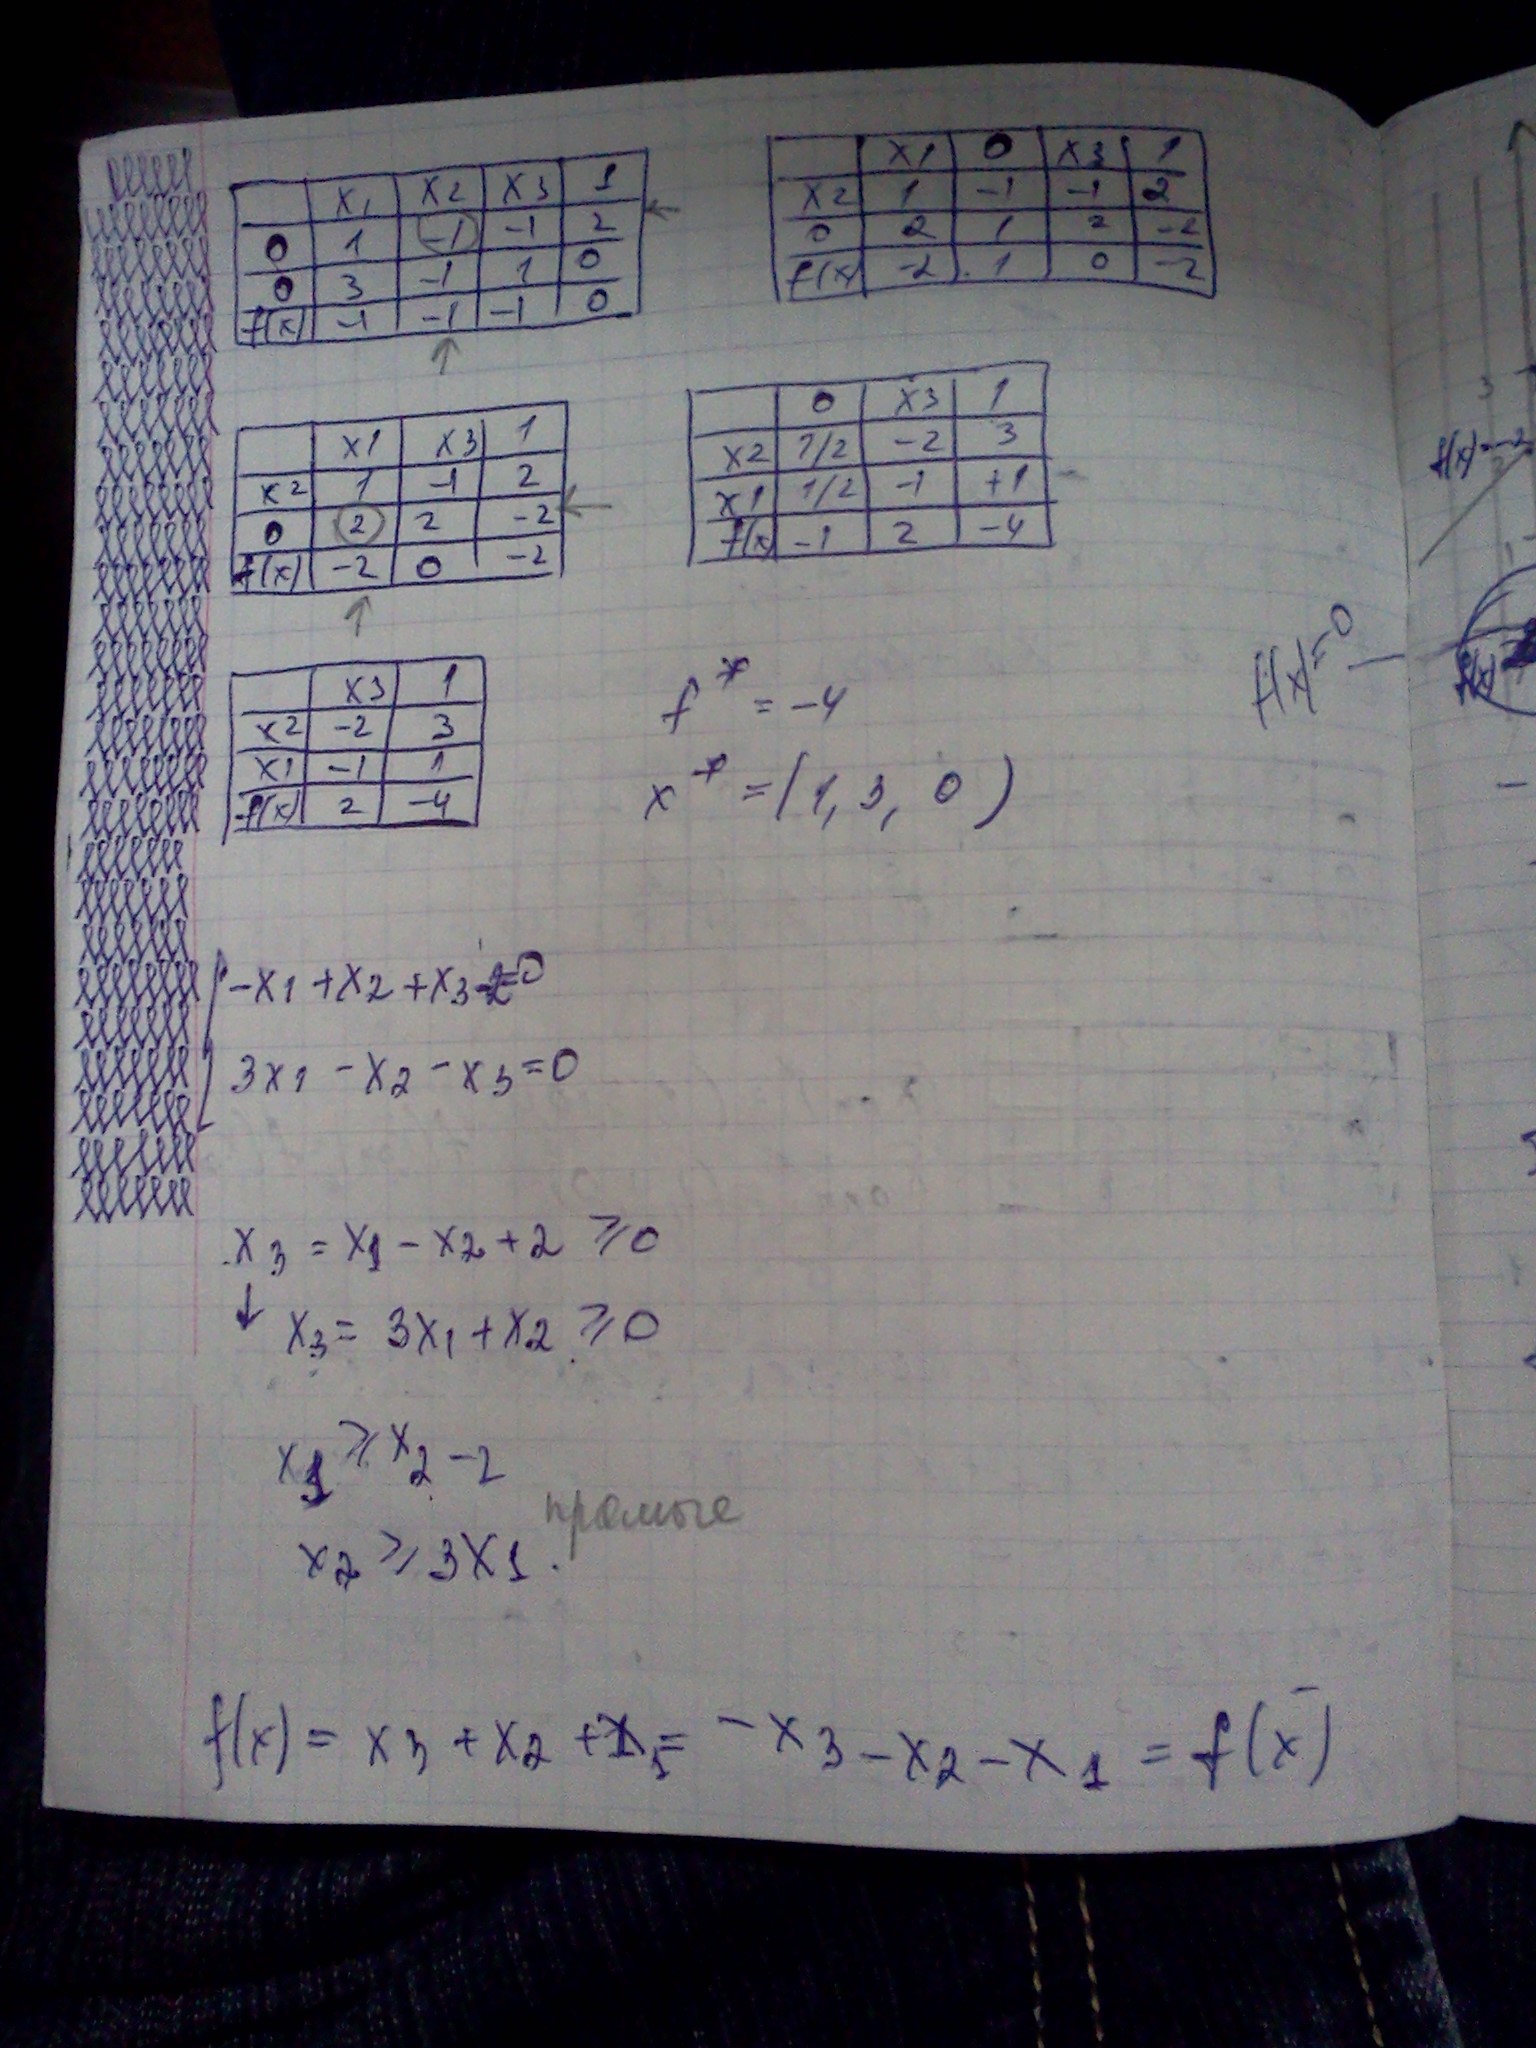 x1 x2 x3 1
0 1 -1 -1 2 ←
0 3 -1 1 0
f(x) -1 -1 -1 0
↑
x1 0 x3 1
x2 1 -1 -1 2
0 2 1 2 -2
f(x) -2 1 0 -2
x1 x3 1
x2 1 -1 2
0 2 2 -2 ←
f(x) -2 0 -2
↑
0 x3 1
x2 1/2 -2 3
x1 1/2 -1 +1
f(x) -1 2 -4
x3 1
x2 -2 3
x1 -1 1
f(x) 2 -4
f* = -4
x* = (1, 3, 0)
-x1 + x2 + x3 -2=0
3x1 - x2 - x3 = 0
x3 = x1 - x2 + 2 ⩾ 0
↓ x3 = 3x1 + x2 ⩾ 0
x1 ⩾ x2 - 2
прямые
x2 ⩾ 3x1.
f(x) = x3 + x2 + x1 = -x3 - x2 - x1 = f(x̄)
f(x)=0
f(x)=-2
3
f(x)